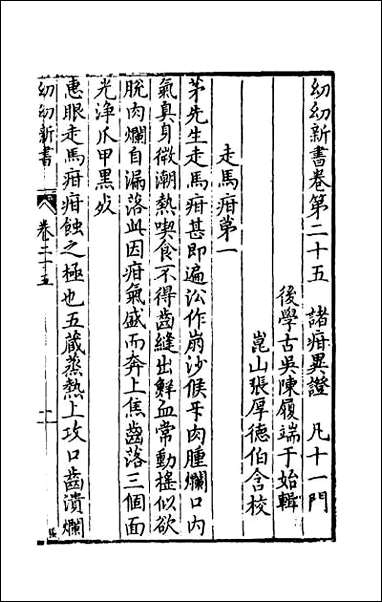 幼幼新書卷第二十五　諸疳異證　凡十一門
後學古吳陳履端于始輯
崑山張厚德伯含校
走馬疳第一
茅先生走馬疳甚即遍沿作崩沙候牙肉腫爛口內
氣臭身微潮熱喫食不得齒縫出鮮血常動搖似欲
脫肉爛自漏落此因疳氣盛而奔上焦齒落三個面
光浄爪甲黑必
惠眼走馬疳疳蝕之極也五藏蒸熱上攻口齒潰爛
幼幼新書　卷二十五　一